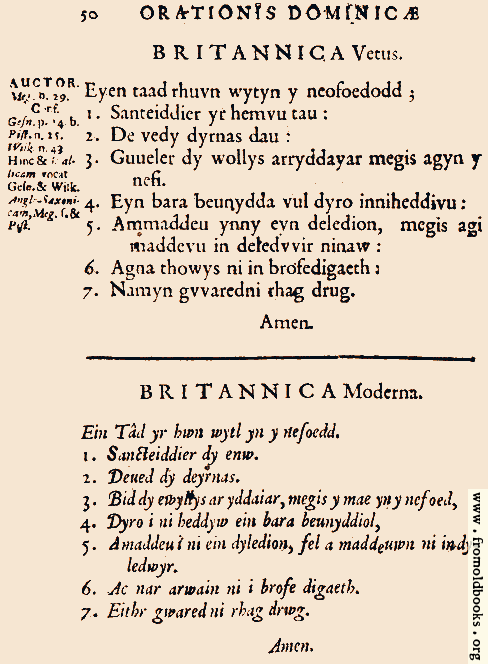 50 ORATIONIS DOMINICÆ
BRITANNICA Vetus.
AUCTOR.
Meg. n. 29.
Gesn. p. 14. b.
Pist. n. 25.
Wilk. n. 43
Hinc & ital-
licam vocat
Gesn. & Wilk.
Anglo-Saxoni-
cam, Meg. s. &
Pist.
Eyen taad rhuvn wytyn y neofoedodd ;
1. Santeiddier yr hemvu tau :
2. De vedy dyrnas dau :
3. Guueler dy wollys arryddayar megis agyn y
nefi.
4. Eyn bara beunydda vul dyro inniheddivu :
5. Ammaddeu ynny eyn deledion, megis agi
maddevu in deledvvir ninaw :
6. Agna thowys ni in brofedigaeth :
7. Namyn gvvaredni rhag drug.
Amen.
BRITANNICA Moderna.
Ein Tâd yr hwn wytl yn y nefoedd.
1. Sancteiddier dy enw.
2. Deued dy deyrnas.
3. Bid dy ewyllys ar yddaiar, megis y mae yn y nefoed,
4. Dyro i ni heddyw ein bara beunyddiol,
5. Amaddeu i ni ein dyledion, fel a maddeuwn ni indy
ledwyr.
6. Ac nar arwain ni i brofe digaeth.
7. Eithr gwared ni rhag drwg.
Amen.
www.fromoldbooks.org